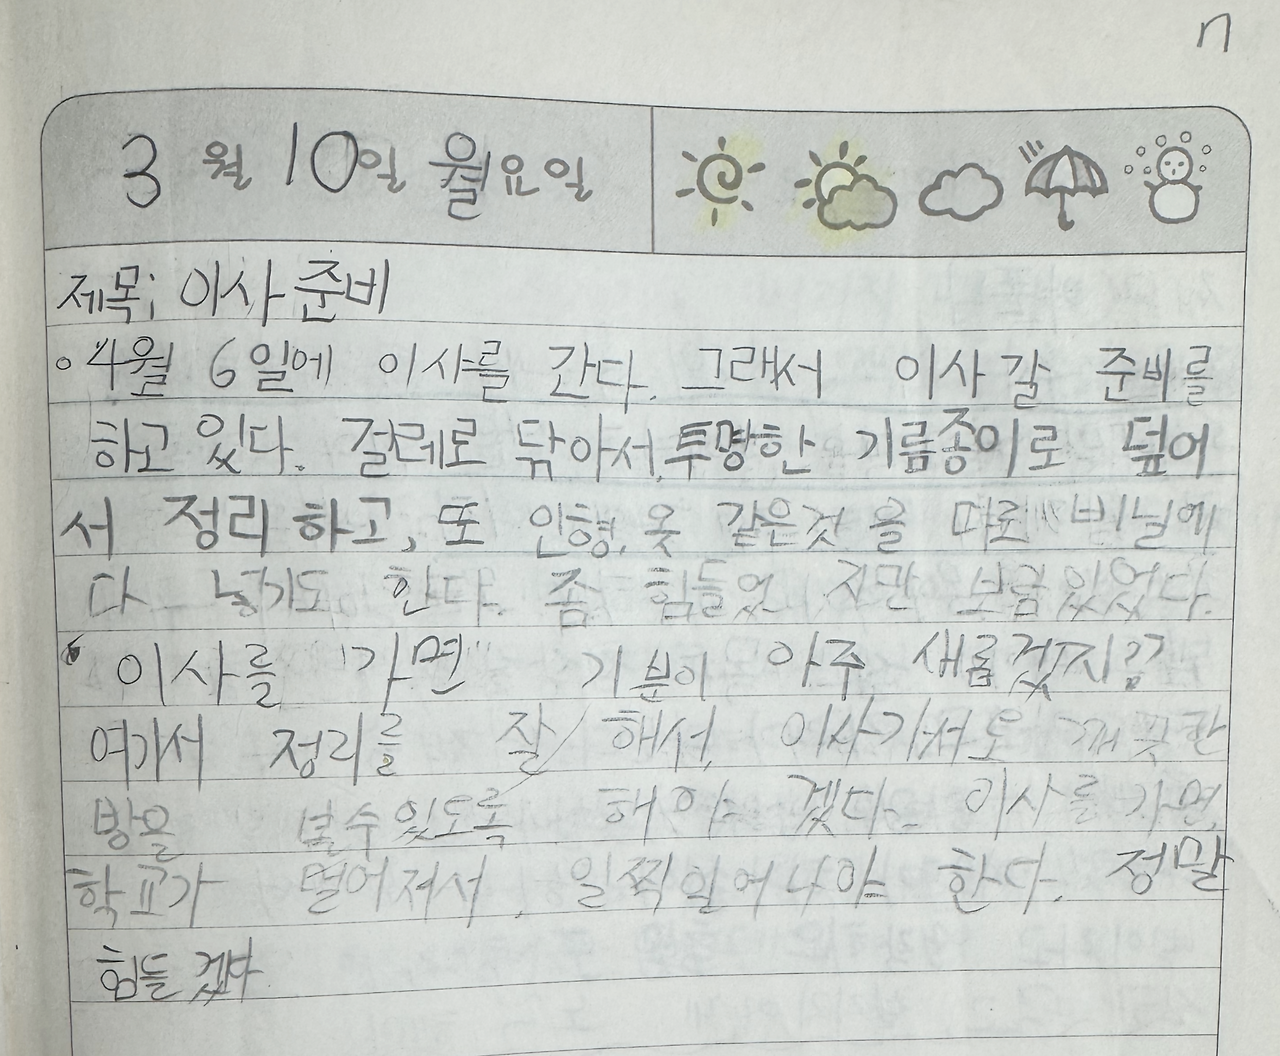 3월 10일 월요일
제목: 이사 준비
4월 6일에 이사를 간다. 그래서 이사 갈 준비를
하고 있다. 걸레로 닦아서, 투명한 기름종이로 덮어
서 정리 하고, 또 인형, 옷 같은것 을 따로 비닐에
다 넣기도 한다. 좀 힘들었 지만 보금있었다.
이사를 가면 기분이 아주 새롭겠지??
여기서 정리를 잘 해서, 이사가서도 깨끗한
방을 볼수있도록 해야 겠다. 이사를 가면,
학교가 멀어져서, 일찍일어나야 한다. 정말
힘들 겠다